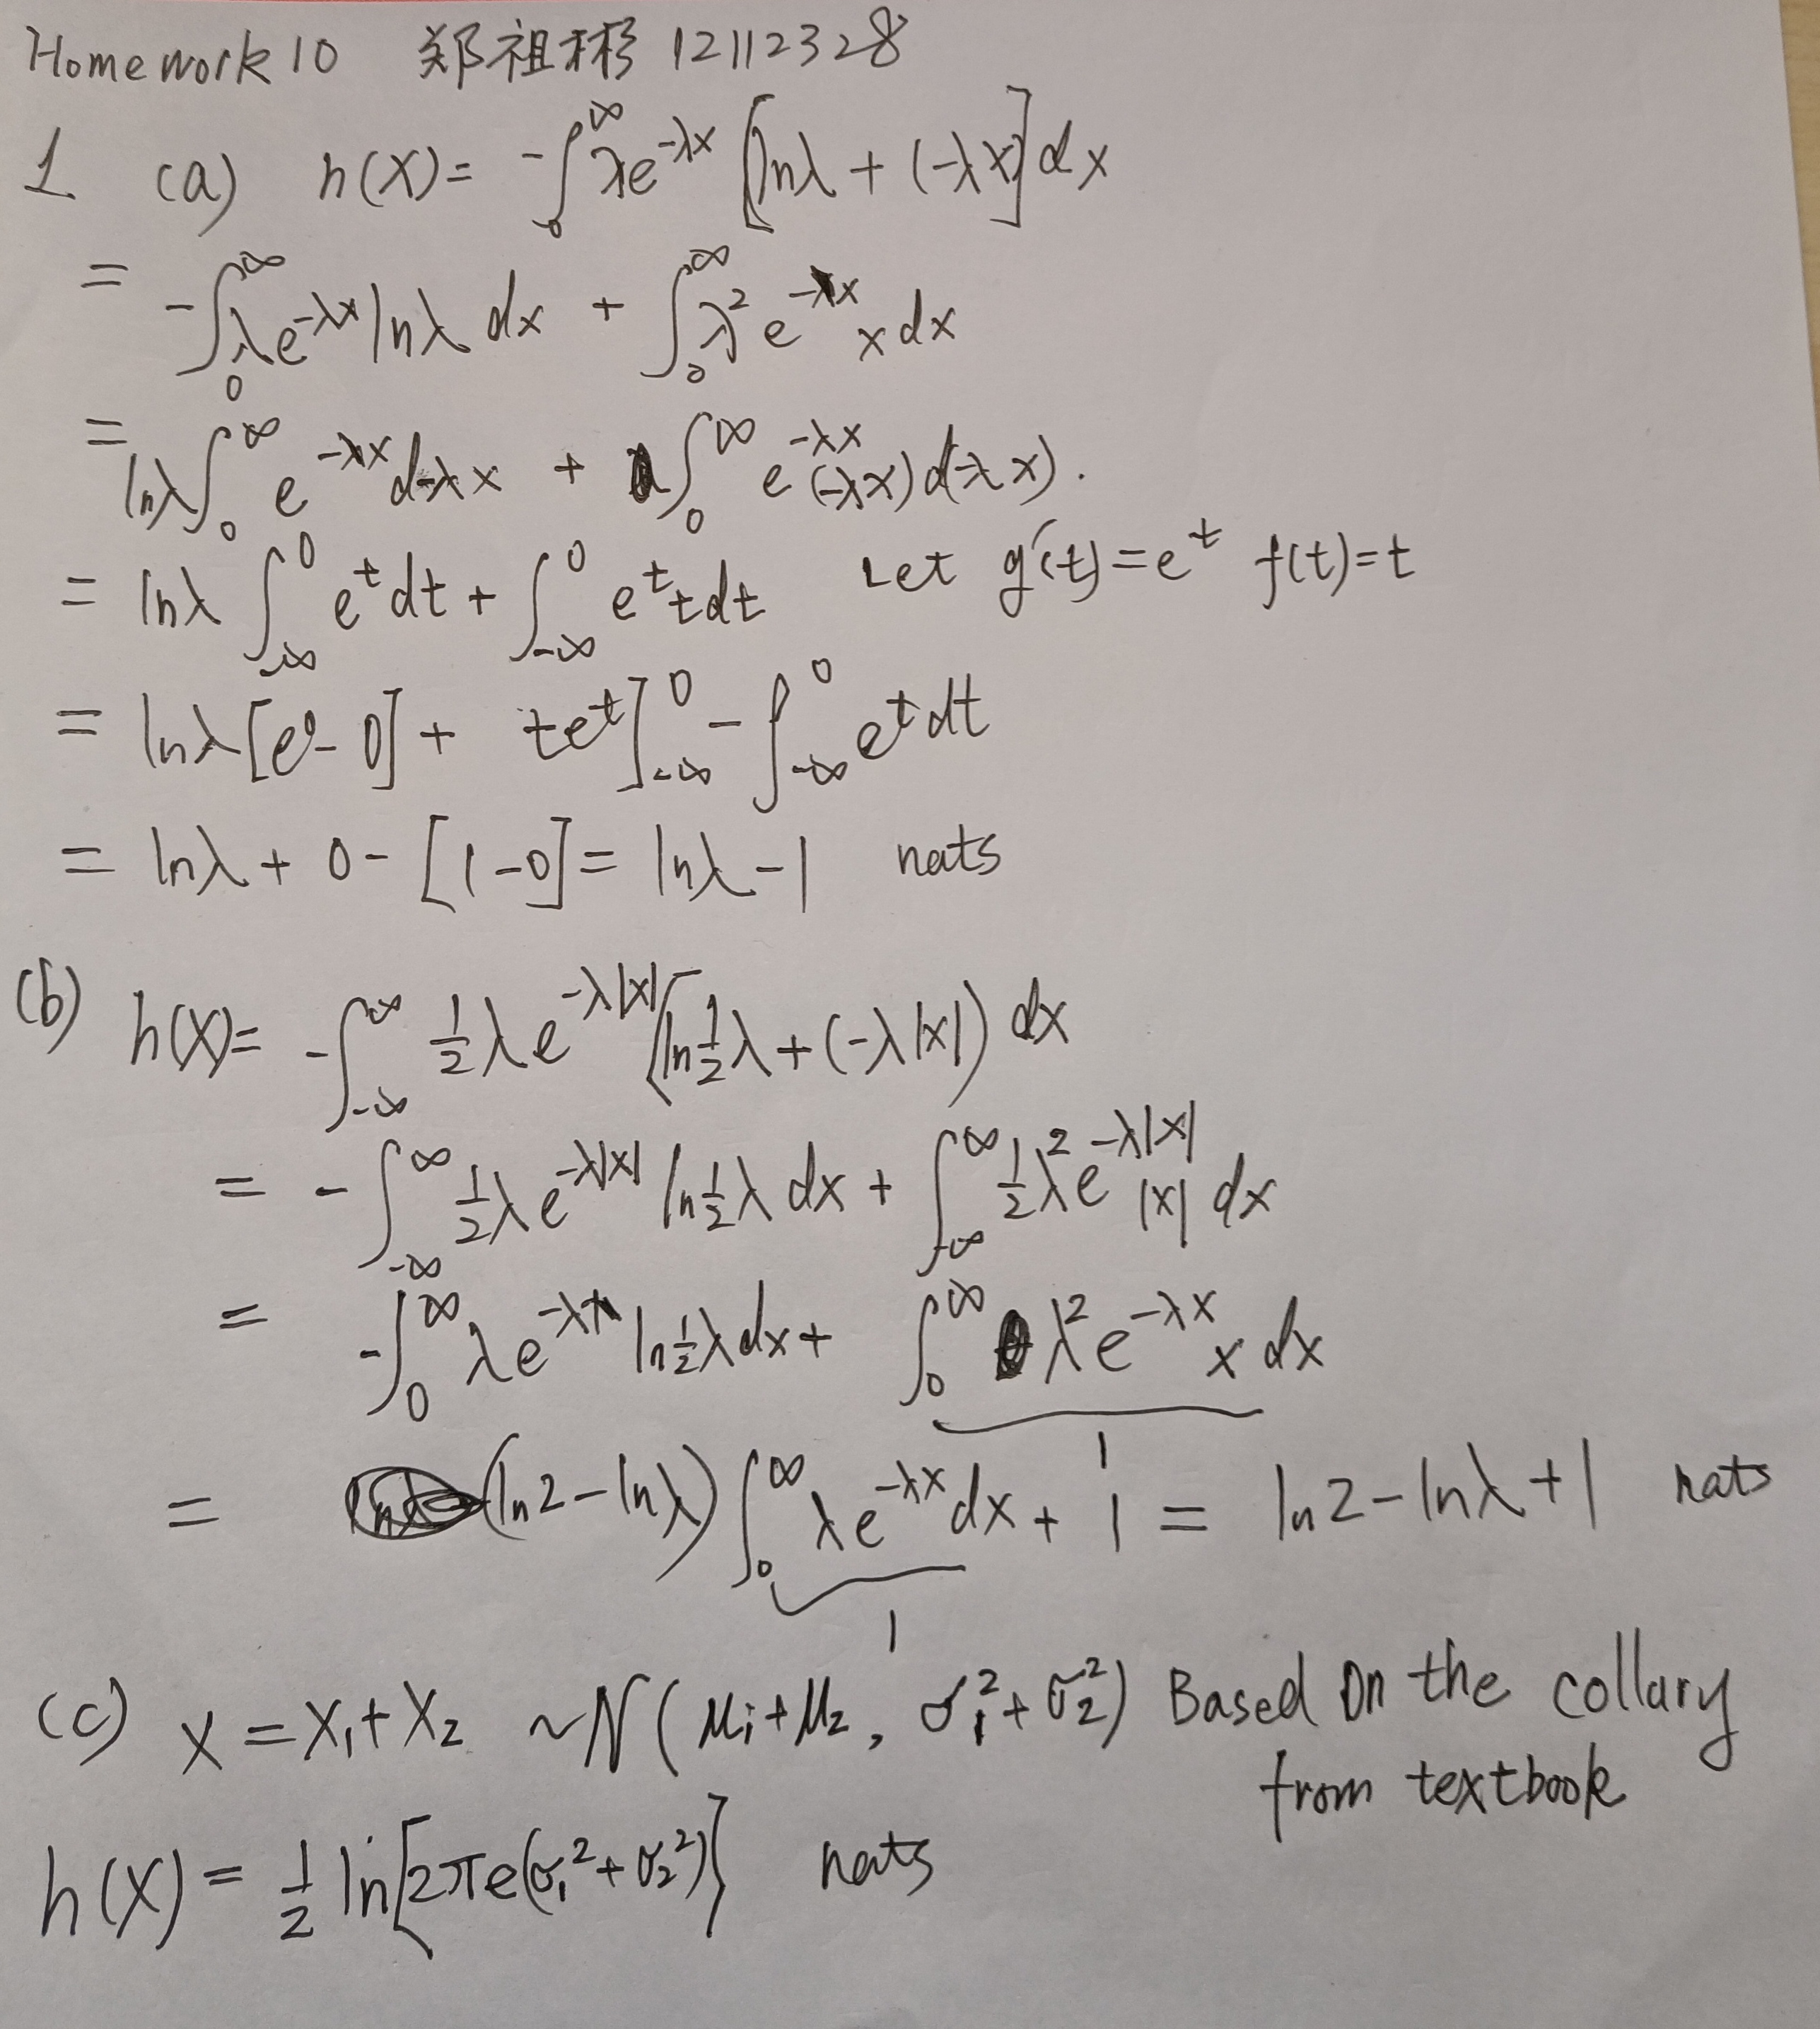 Homework 10 郑祖彬 12112328
1 (a) h(X) = -∫₀^∞ λe^{-λx} [lnλ + (-λx)] dx
= -∫₀^∞ λe^{-λx} lnλ dx + ∫₀^∞ λ² e^{-λx} x dx
= lnλ ∫₀^∞ e^{-λx} d-λx + ∫₀^∞ e^{-λx} (-λx) d(-λx).
= lnλ ∫_{-∞}^0 e^t dt + ∫_{-∞}^0 e^t t dt Let g'(t) = e^t f(t) = t
= lnλ [e⁰ - 0] + te^t]_{-∞}^0 - ∫_{-∞}^0 e^t dt
= lnλ + 0 - [1 - 0] = lnλ - 1 nats
(b) h(X) = -∫_{-∞}^∞ ½ λe^{-λ|x|} (ln½λ + (-λ|x|)) dx
= -∫_{-∞}^∞ ½ λe^{-λ|x|} ln½λ dx + ∫_{-∞}^∞ ½ λ² e^{-λ|x|} |x| dx
= -∫₀^∞ λe^{-λx} ln½λ dx + ∫₀^∞ λ² e^{-λx} x dx
1
= (ln2 - lnλ) ∫₀^∞ λe^{-λx} dx + 1 = ln2 - lnλ + 1 nats
1
(c) X = X₁ + X₂ ~ N(μ₁ + μ₂, σ₁² + σ₂²) Based on the collary
from textbook
h(X) = ½ ln[2πe(σ₁² + σ₂²)] nats